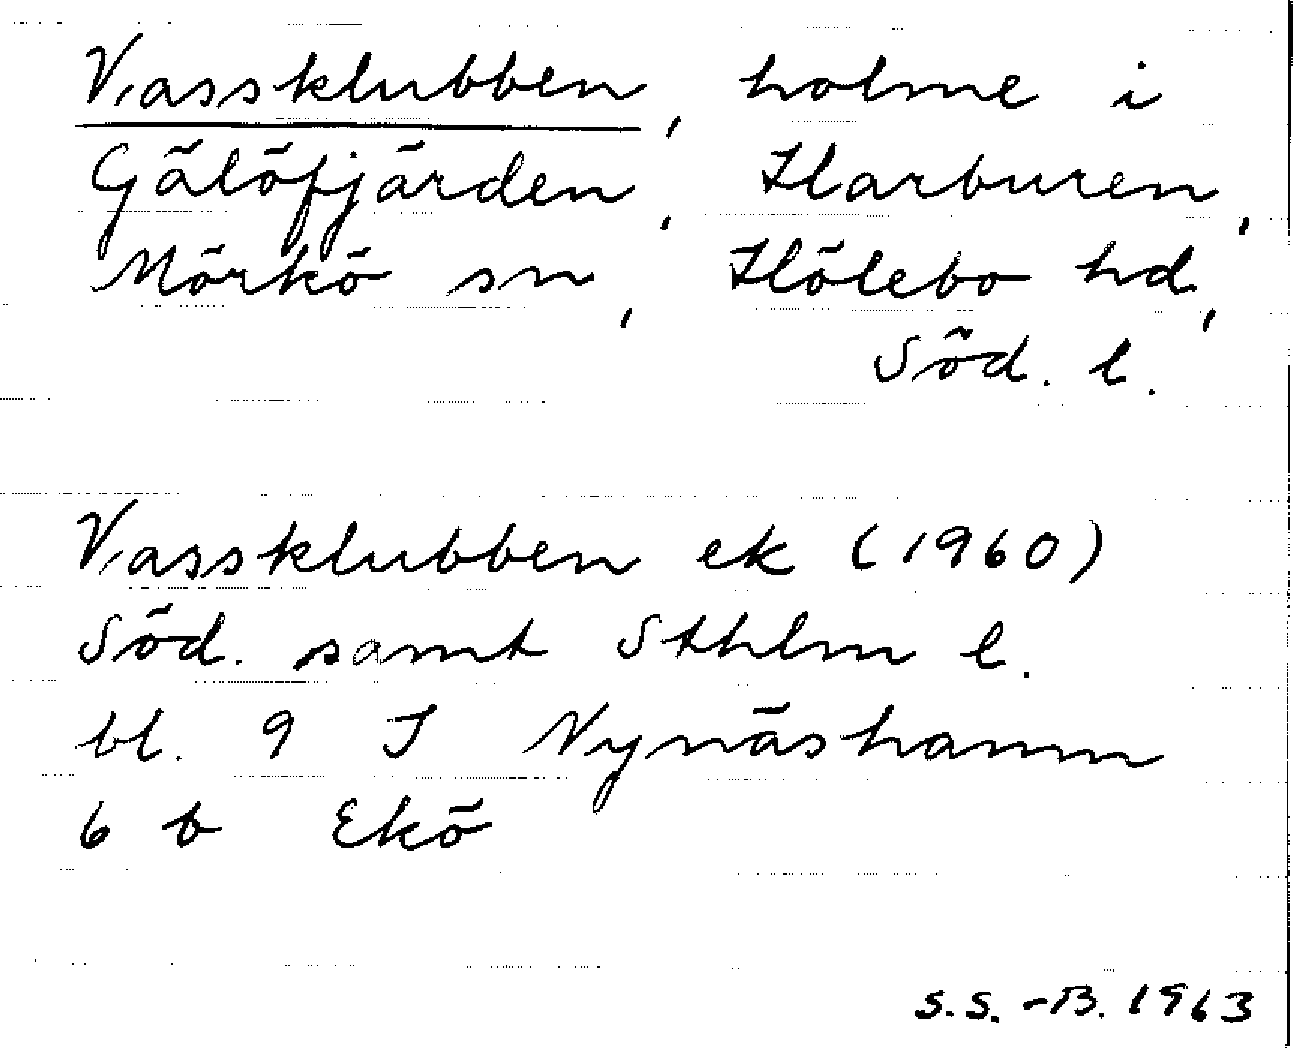 Vassklubben, holme i
Gälöfjärden, Harburen,
Mörkö sn, Hölebo hd,
Söd. l.
Vassklubben ek (1960)
Söd. samt Sthlm l.
bl. 9 I Nynäshamn
6 b Ekö
S.S.-B. 1963